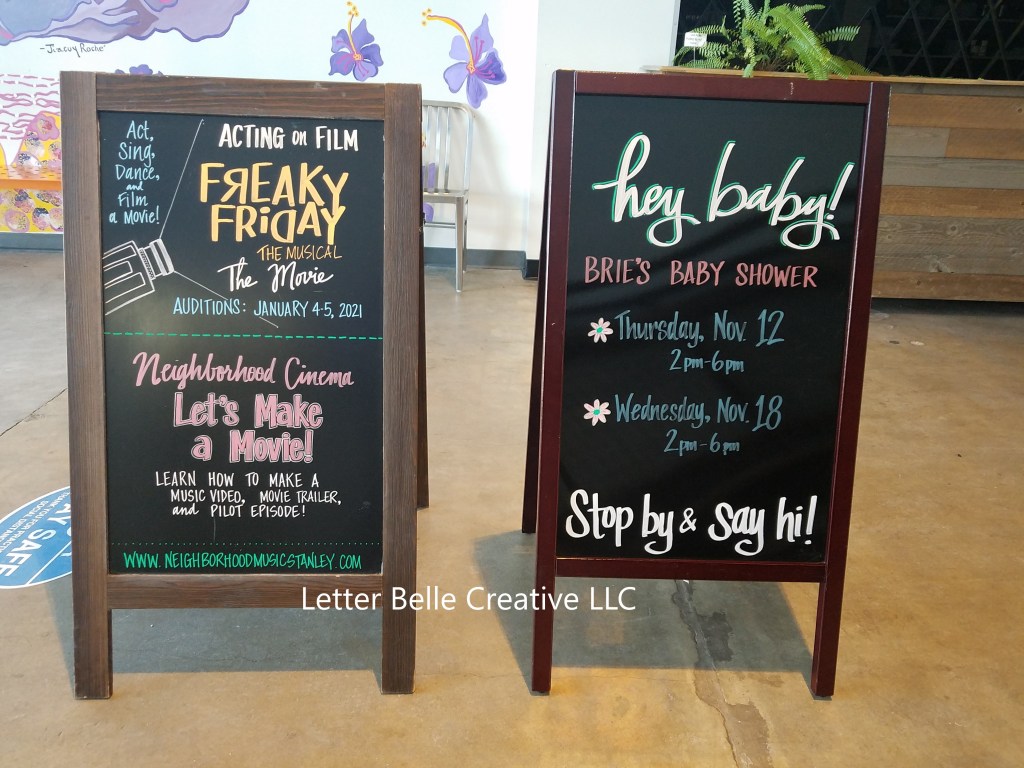 -Jimmy Roche'
Act,
Sing,
Dance,
and
Film
a Movie!
ACTING on FILM
FREAKY
FRIDAY
THE MUSICAL
The Movie
AUDITIONS: JANUARY 4-5, 2021
Neighborhood Cinema
Let's Make
a Movie!
LEARN HOW TO MAKE A
MUSIC VIDEO, MOVIE TRAILER,
and PILOT EPISODE!
WWW.NEIGHBORHOODMUSICSTANLEY.COM
hey baby!
BRIE'S BABY SHOWER
Thursday, Nov. 12
2pm-6pm
Wednesday, Nov. 18
2pm-6pm
Stop by & say hi!
SAFE
Letter Belle Creative LLC